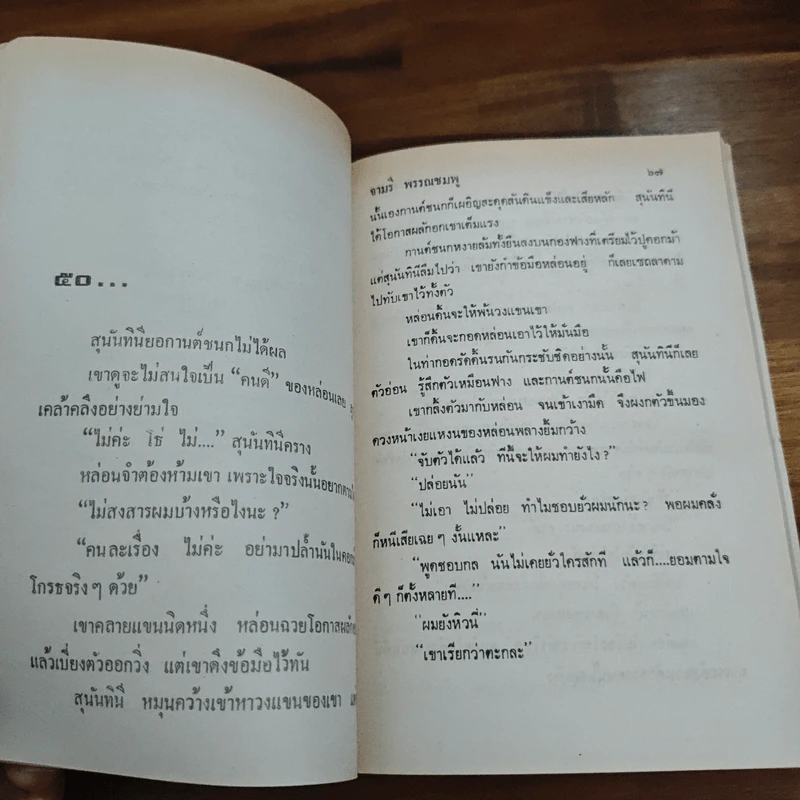 ๕๐...
สุนันทินียอกานต์ชนกไม่ได้ผล
เขาดูจะไม่สนใจเป็น “คนดี” ของหล่อนเลย
เคล้าคลึงอย่างย่ามใจ
“ไม่ค่ะ โธ่ ไม่....” สุนันทินีคราง
หล่อนจำต้องห้ามเขา เพราะใจจริงนั้นอยากตาม
“ไม่สงสารผมบ้างหรือไงนะ ?”
“คนละเรื่อง ไม่ค่ะ อย่ามาปล้ำนันในคอก
โกรธจริงๆ ด้วย”
เขาคลายแขนนิดหนึ่ง หล่อนฉวยโอกาสผลัก
แล้วเบี่ยงตัวออกวิ่ง แต่เขาดึงข้อมือไว้ทัน
สุนันทินี หมุนคว้างเข้าหาวงแขนของเขา
จามรี พรรณชมพู ๖๗
นั้นเองกานต์ชนกก็เผอิญสะดุดสันดินแข็งและเสียหลัก สุนันทินี
ได้โอกาสผลักอกเขาเต็มแรง
กานต์ชนกหงายล้มทั้งยืนลงบนกองฟางที่เตรียมไว้ปูคอกม้า
แต่สุนันทินีลืมไปว่า เขายังกำข้อมือหล่อนอยู่ ก็เลยเซถลาตาม
ไปทับเขาไว้ทั้งตัว
หล่อนดิ้นจะให้พ้นวงแขนเขา
เขาก็ดิ้นจะกอดหล่อนเอาไว้ให้มั่นมือ
ในท่ากอดรัดดิ้นรนกันกระชับชิดอย่างนั้น สุนันทินีก็เลย
ตัวอ่อน รู้สึกตัวเหมือนฟาง และกานต์ชนกนั้นคือไฟ
เขากลิ้งตัวมากับหล่อน จนเข้าเงามืด จึงผงกตัวขึ้นมอง
ดวงหน้าเงยแหงนของหล่อนพลางยิ้มกว้าง
“จับตัวได้แล้ว ทีนี้จะให้ผมทำยังไง ?”
“ปล่อยนัน”
“ไม่เอา ไม่ปล่อย ทำไมชอบยั่วผมนักนะ ? พอผมคลั่ง
ก็หนีเสียเฉยๆ งั้นแหละ”
“พูดชอบกล นันไม่เคยยั่วใครสักที แล้วก็....ยอมตามใจ
ดีๆ ก็ตั้งหลายที....”
“ผมยังหิวนี่”
“เขาเรียกว่าตะกละ”